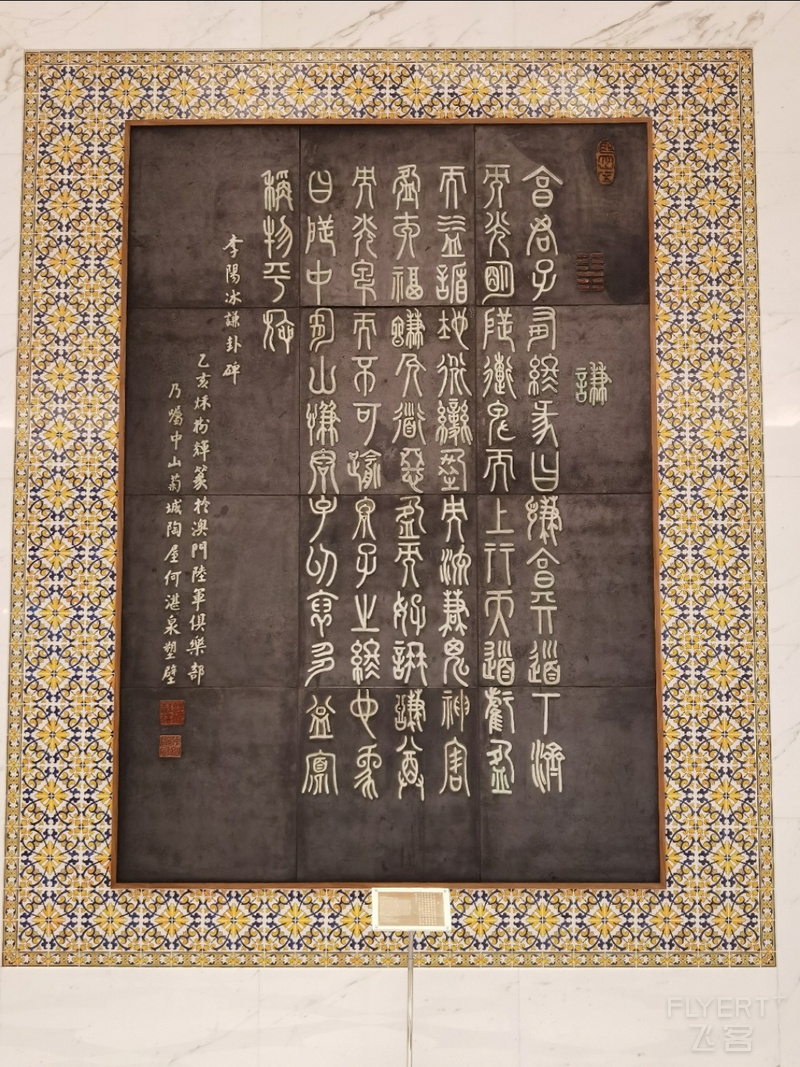 謙
亨君子有終彖曰謙亨天道下濟
而光明地道卑而上行天道虧盈
而益謙地道變盈而流謙鬼神害
盈而福謙人道惡盈而好謙謙尊
而光卑而不可踰君子之終也象
曰地中有山謙君子以裒多益寡
稱物平施
李陽冰謙卦碑
乙亥秌輝篆於澳門陸軍俱樂部
乃囑中山菊城陶屋何湛泉塑壁
FLYERT
飞客